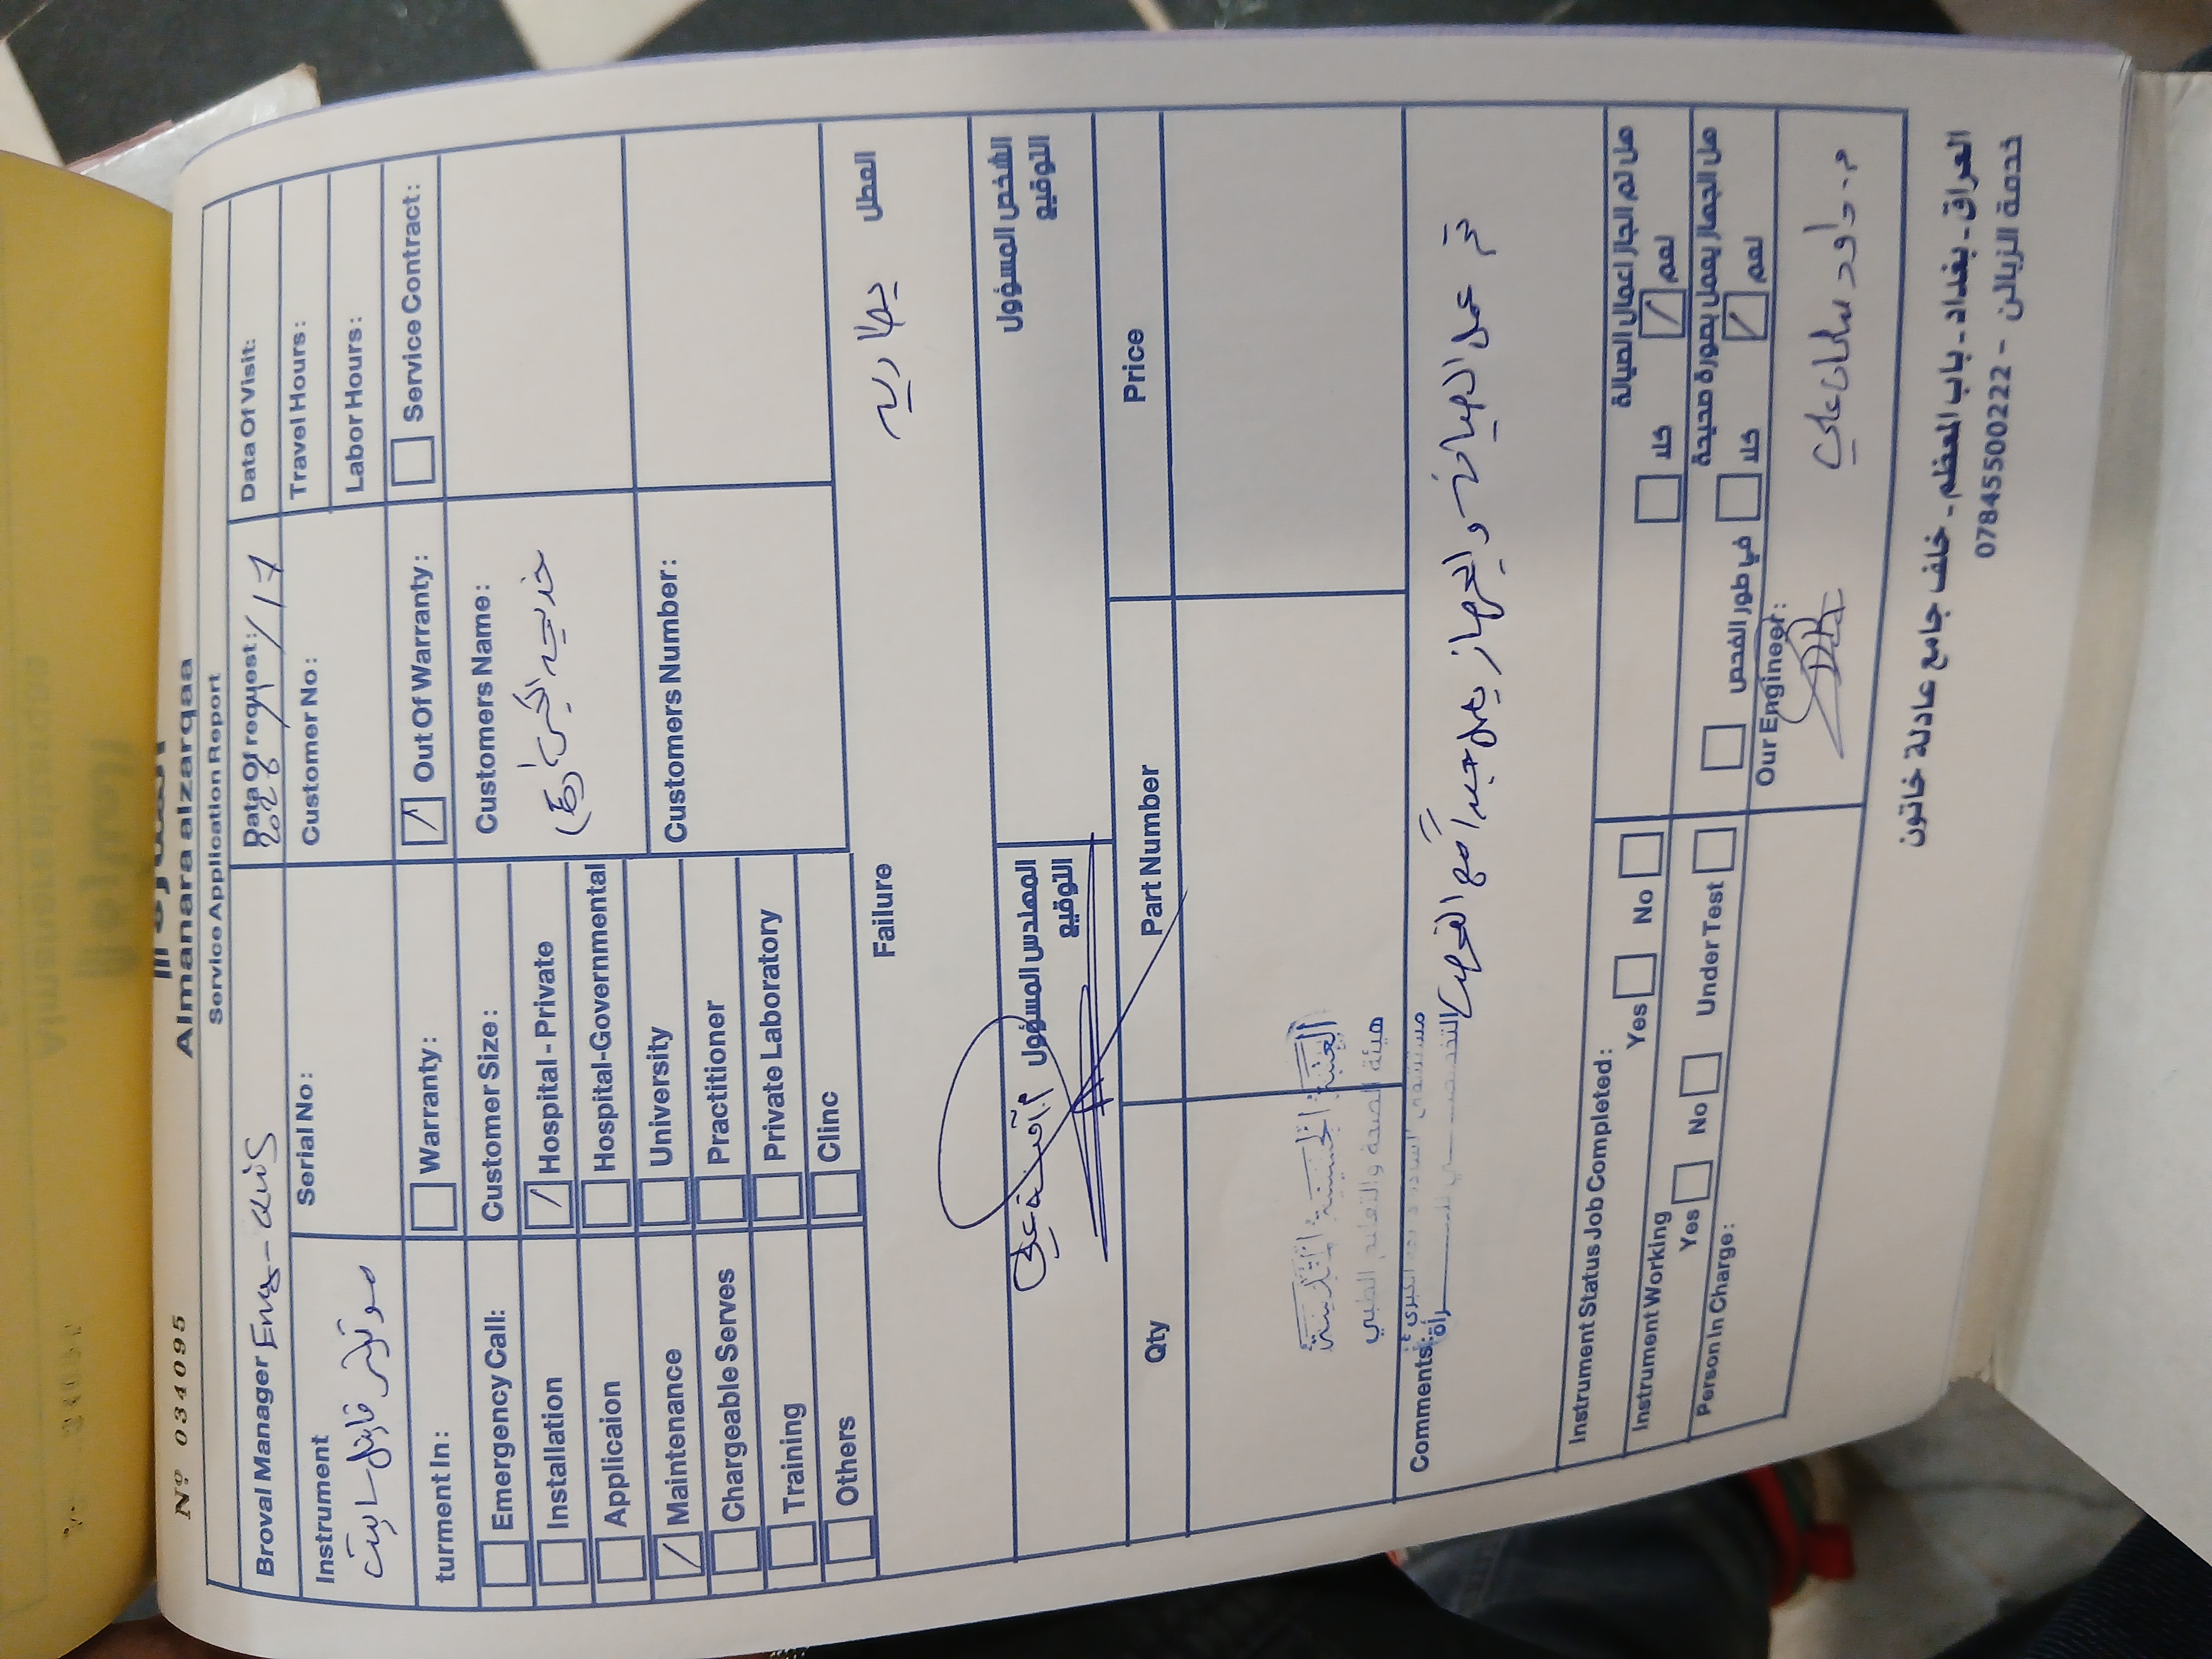 Nº 034095
Almanara alzarqaa
Service Application Report
Broval Manager Eng-
Data Of request: 2026/1/17
Data Of Visit:
Instrument
Serial No:
Customer No:
Travel Hours:
Labor Hours:
turment In:
Warranty:
Out Of Warranty:
Service Contract:
Emergency Call:
Customer Size:
Customers Name:
Installation
Hospital - Private
خديجة الكبرى
Applicaion
Hospital-Governmental
Maintenance
University
Customers Number:
Chargeable Serves
Practitioner
Training
Private Laboratory
Others
Clinc
Failure
العطل
بطارية
المهندس المسؤول
التوقيع
الشخص المسؤول
التوقيع
Qty
Part Number
Price
العتبة الحسينية المقدسة
هيئة الصحة والتعليم الطبي
Comments:
تم عمل الصيانة و الجهاز يعمل جيداً مع
Instrument Status Job Completed:
Yes No
هل تم انجاز اعمال الصيانة
نعم كلا
Instrument Working
Yes No Under Test
هل الجهاز يعمل بصورة صحيحة
نعم كلا في طور الفحص
Person In Charge:
Our Engineer:
م. داود سلمان علي
العراق - بغداد - باب المعظم - خلف جامع عادلة خاتون
خدمة الزبائن - 07845500222